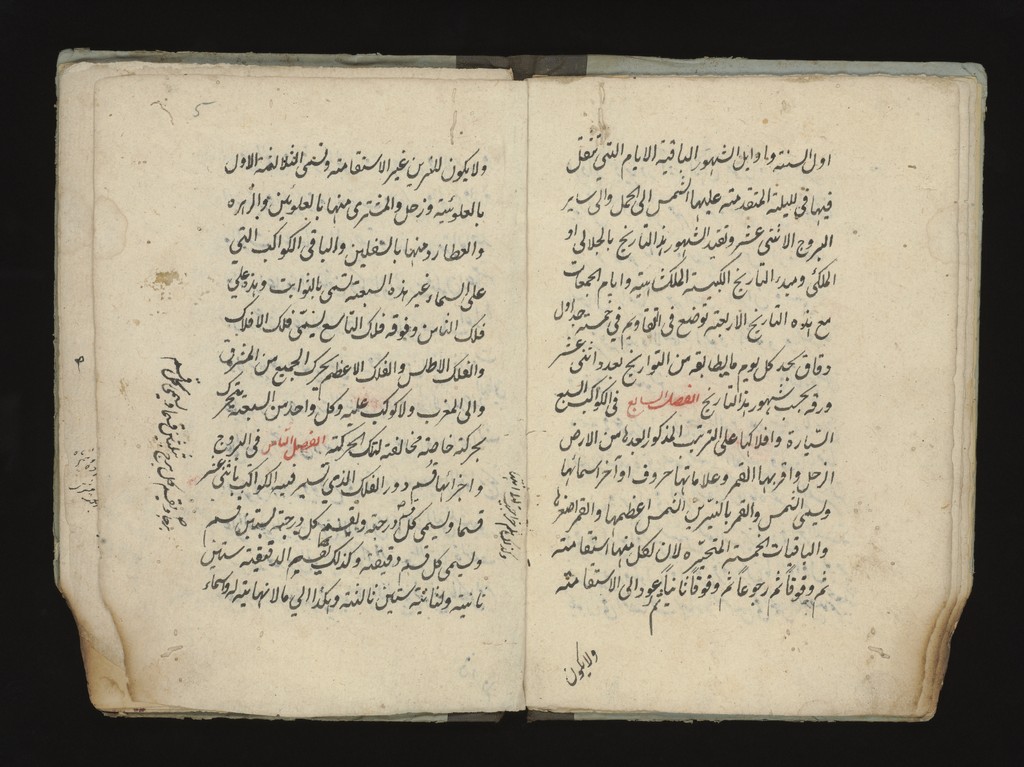 اول السنة واوايل الشهور الباقية الايام التي تنقل
فيها في ليلة المتقدمة عليها الشمس الى الحمل والى ساير
البروج الاثنى عشر وتقيد الشهور بهذا التاريخ بالجلالى او
الملكى ومبدء التاريخ الكبسة الملكشاهية وايام الجمعات
مع هذه التاريخ الاربعة توضع فى التقاويم فى خمسة جداول
دقاق بجد كل يوم ما يطابقه من التواريخ بعدد اثنى عشر
ورقه بحسب شهور هذا التاريخ الفصل السابع فى الكواكب السبع
السيارة وافلاكها على الترتيب المذكور ابعدها من الارض
الزحل واقربها القمر وعلاماتها حروف اواخر اسمائها
ويسمى الشمس والقمر بالنيرين الشمس اعظمها والقمر اصغرها
والباقيات الخمسة المتحيره لان لكل منها استقامته
ثم وقوفاً ثم رجوعاً ثم وقوفاً ثانياً ثم عود الى الاستقامة
ولايكون
ولايكون للنيرين غير الاستقامة وتسمى الثلاثة الاول
بالعلوية وزحل والمشترى منها بالعلويين والزهره
والعطارد منها بالسفليين والباقى الكواكب التي
على السماء غير هذه السبعة تسمى بالثوابت وهذه على
فلك الثامن وفوقه فلك التاسع يسمى فلك الافلاك
والفلك الاطلس والفلك الاعظم يحرك الجميع من المشرق
والى المغرب ولا كوكب عليه وكل واحد من السبعة يتحرك
بحركة خاصة مخالفة لتلك الحركة الفصل الثامن فى البروج
واجزائها قسم دور الفلك الذى تسير فيه الكواكب باثنى عشر
قسما ويسمى كل درجة ويقسم كل درجة بستين قسم
ويسمى كل قسم دقيقة وكذلك يقسم الدقيقة ستين
ثانية والثانية ستين ثالثة وهكذا الى مالانهاية له واسماء